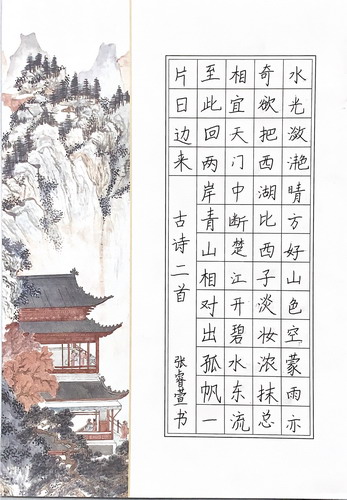 水光潋滟晴方好山色空蒙雨亦
奇欲把西湖比西子淡妆浓抹总
相宜天门中断楚江开碧水东流
至此回两岸青山相对出孤帆一
片日边来
古诗二首
张睿萱书